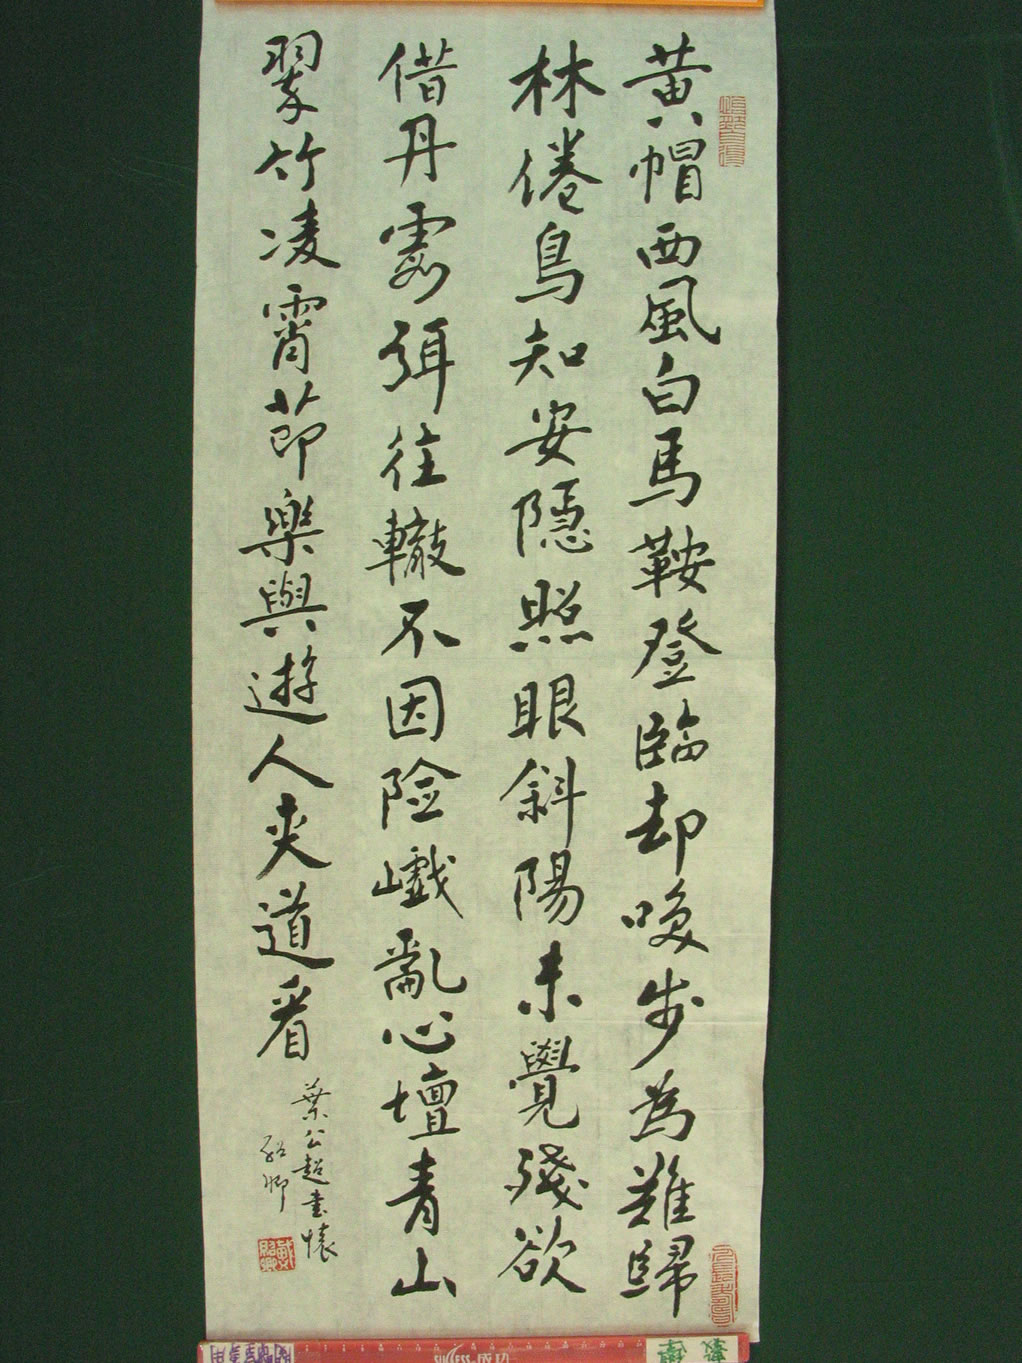 黃帽西風白馬鞍登臨却喚步為難歸
林倦鳥知安隱照眼斜陽未覺殘欲
借丹霞弭往轍不因險巇亂心壇青山
翠竹凌霄節樂與遊人夾道看
葉公超書懷
SUCCESS 成功